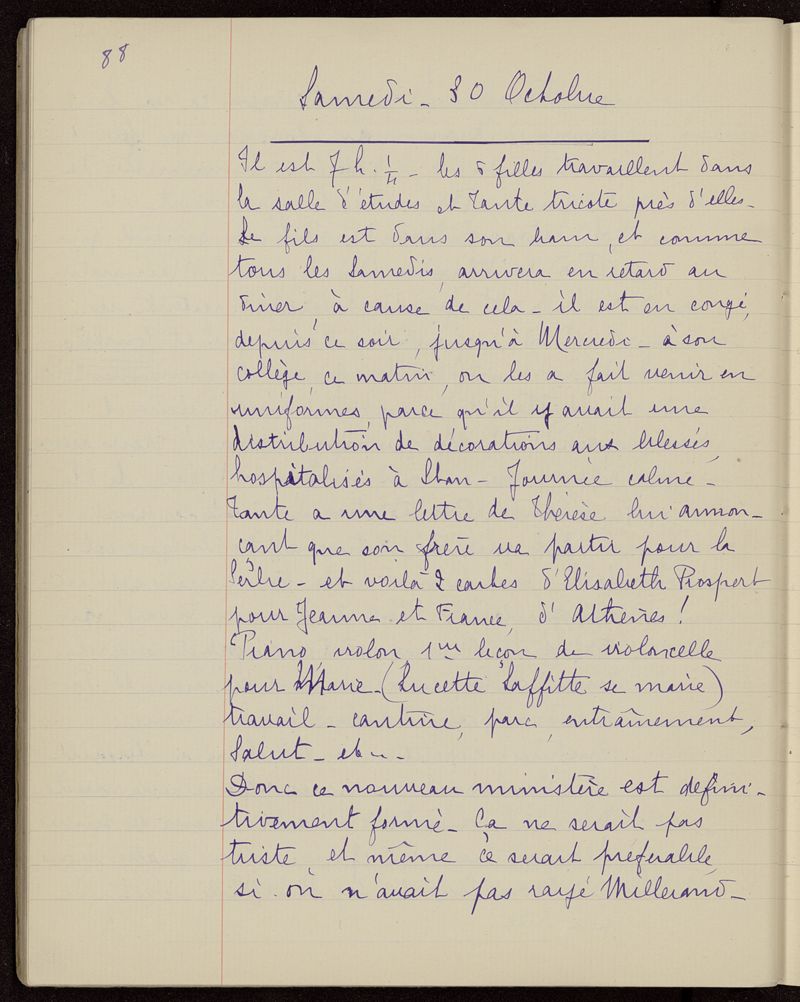 88
Samedi - 30 Octobre
Il est 7 h. 1/4 - les 5 filles travaillent dans
la salle d'études et Tante tricote près d'elles -
Le fils est dans son bain, et comme
tous les Samedis, arrivera en retard au
dîner, à cause de cela - il est en congé,
depuis ce soir, jusqu'à Mercredi - à son
collège, ce matin, on les a fait venir en
uniformes, parce qu'il y avait une
distribution de décorations aux blessés,
hospitalisés à Stan - Journée calme -
Tante a une lettre de Thérèse lui annon-
çant que son frère va partir pour la
Serbie - et voilà 2 cartes d'Elisabeth Prospert
pour Jeanne et France, d'Athènes !
Piano, violon, 1ère leçon de violoncelle
pour Marie - (Lucette Laffitte se marie)
travail - cantine, parc, entraînement,
Salut - etc -
Donc ce nouveau ministère est défini-
tivement formé - Ca ne serait pas
triste, et même ce serait préférable,
si on n'avait pas rayé Millerand -